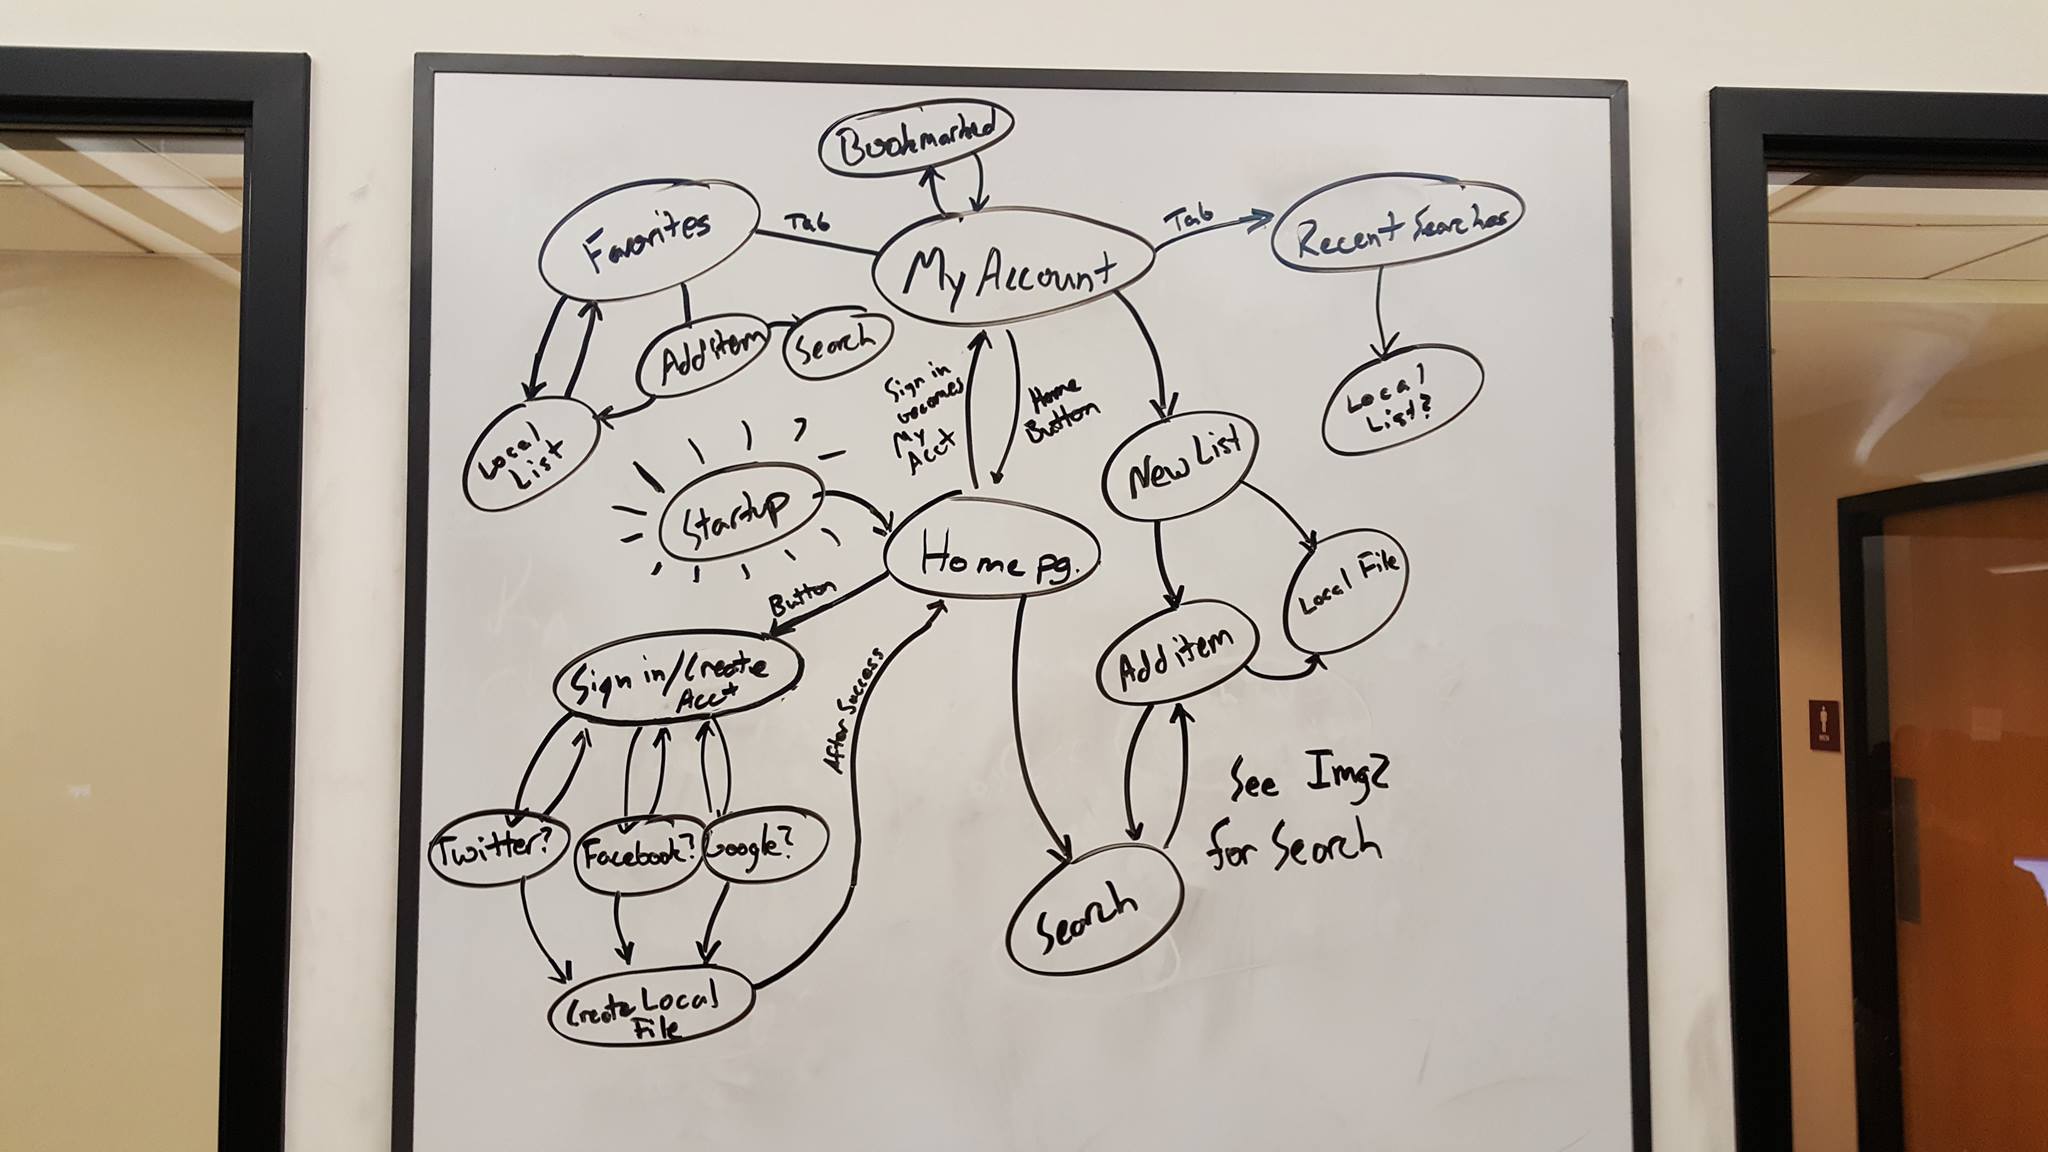 Bookmarked
Favorites
Tab
My Account
Tab
Recent Searches
Add item
Search
Local
List
Sign in
becomes
My
Acct
Home
Button
New List
Local
List?
Startup
Home pg.
Local File
Button
Sign in/Create
Acct
After Success
Add item
See Img2
for Search
Twitter?
Facebook?
Google?
Search
Create Local
File
MEN